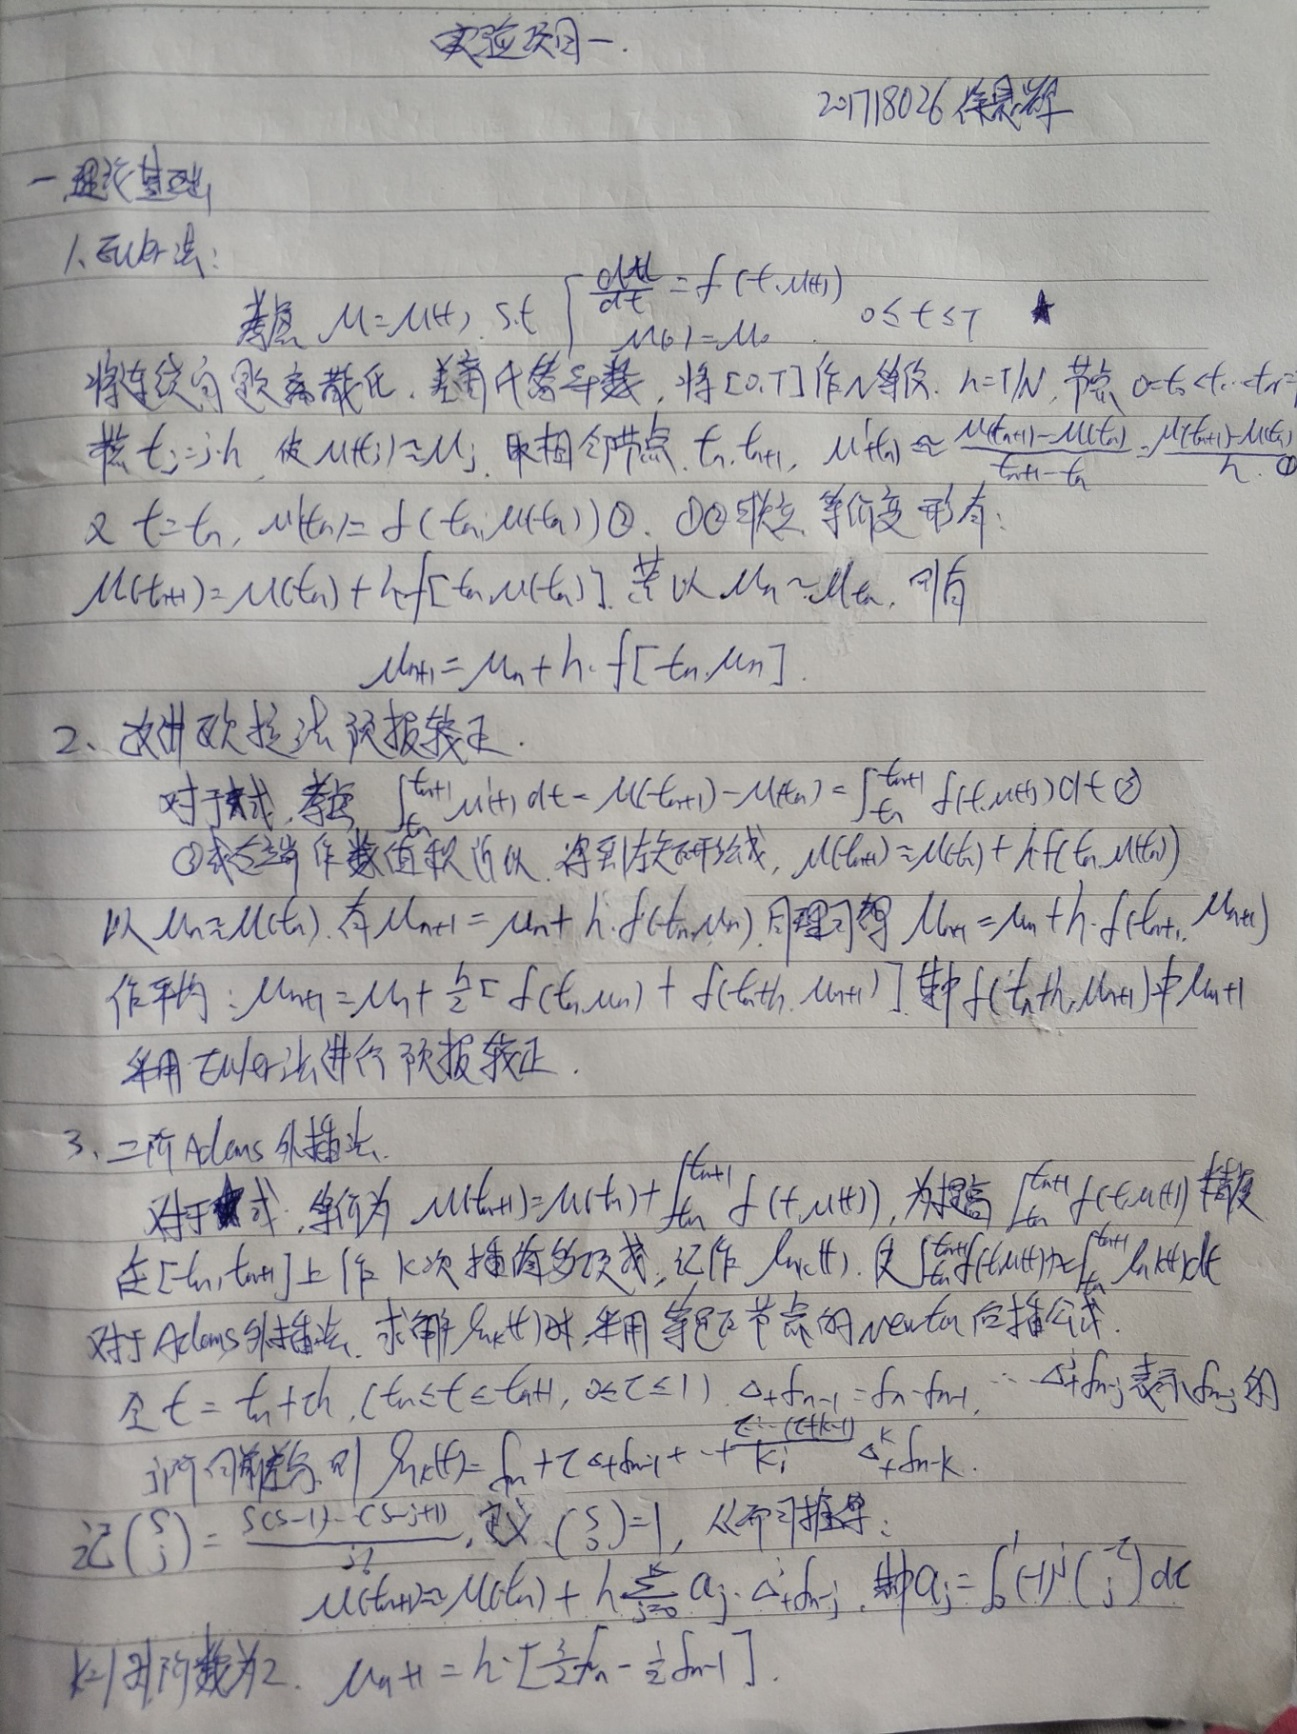 实验项目一.
201718026 徐
一.理论基础
1、Euler法:
考虑 μ=μ(t), s.t { dμ/dt = f(t,μ(t)) μ(0)=μ₀ 0≤t≤T ★
将连续问题离散化. 差商代替导数, 将[0,T]作N等份. h=T/N, 节点 0=t₀<t₁…<t_N=T
t_j=j·h, 使μ(t_j)≈μ_j. 取相邻节点 t_n,t_{n+1}, μ'(t_n)≈(μ(t_{n+1})-μ(t_n))/(t_{n+1}-t_n)=(μ(t_{n+1})-μ(t_n))/h. ①
又 t=t_n, μ'(t_n)=f(t_n,μ(t_n))②. ①②联立 等价变形有:
μ(t_{n+1})=μ(t_n)+h·f[t_n,μ(t_n)]. 若以 μ_n~μ_{t_n}, 则有
μ_{n+1}=μ_n+h·f[t_n,μ_n].
2、改进欧拉法 预报较正.
对于★式, 考虑 ∫_{t_n}^{t_{n+1}} μ'(t) dt=μ(t_{n+1})-μ(t_n)=∫_{t_n}^{t_{n+1}} f(t,μ(t))dt ③
③式 作数值积 得到左矩 μ(t_{n+1})≈μ(t_n)+hf(t_n,μ(t_n))
以 μ_n≈μ(t_n). 有μ_{n+1}=μ_n+h·f(t_n,μ_n). 同理可得 μ_{n+1}=μ_n+h·f(t_{n+1},μ_{n+1})
作平均: μ_{n+1}=μ_n+h/2[f(t_n,μ_n)+f(t_n+h,μ_{n+1})]. 其中f(t_n+h,μ_{n+1})中μ_{n+1}
采用Euler法进行预报较正.
3、二阶Adams外插法.
对于★式, 等价为 μ(t_{n+1})=μ(t_n)+∫_{t_n}^{t_{n+1}} f(t,μ(t)), 为提高 ∫_{t_n}^{t_{n+1}} f(t,μ(t)) 精度
在[t_n,t_{n+1}]上作 k次插值多项式, 记作 l_{n,k}(t). 使∫_{t_n}^{t_{n+1}} f(t,μ(t))≈∫_{t_n}^{t_{n+1}} l_{n,k}(t)dt
对于Adams外插法. 求解l_{n,k}(t)时, 采用等距节点的Newton后插公式.
令 t=t_n+τh, (t_n≤t≤t_{n+1}, 0≤τ≤1) Δ₊f_{n-1}=f_n-f_{n-1}, … Δ₊^j f_{n-j}表示f_{n-j}的
j阶向前差分. 则 l_{n,k}(t)=f_n+τΔ₊f_{n-1}+…+(τ…(τ+k-1))/k! Δ₊^k f_{n-k}.
记(s j)=s(s-1)…(s-j+1)/j!, 定义(s 0)=1, 从而可推导:
μ(t_{n+1})≈μ(t_n)+h Σ_{j=0}^{k} a_j·Δ₊^j f_{n-j}, 其中a_j=∫_0^1 (-1)^j (-τ j) dτ
k=1时,阶数为2. μ_{n+1}=h·[3/2 f_n-1/2 f_{n-1}].